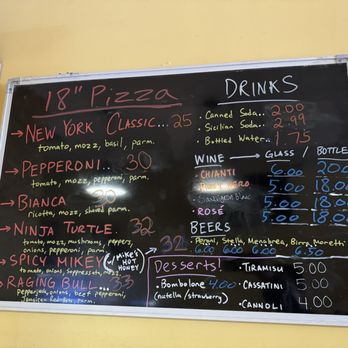 18" Pizza
→ NEW YORK CLASSIC... 25
tomato, mozz, basil, parm.
→ PEPPERONI... 30
tomato, mozz, pepperoni, parm.
→ BIANCA 30
ricotta, mozz, shaved parm.
→ NINJA TURTLE. 32
tomato, mozz, mushrooms, peppers,
onions, pepperoni, parm.
→ SPICY MIKEY (w/ MIKE'S HOT HONEY) 32
tomato, onions, soppressata, mozz
→ RAGING BULL... 33
pepperjack, onions, beef pepperoni,
DRINKS
• Canned Soda.. 2.00
• Sicilian Soda.. 2.99
• Bottled Water.. 1.75
WINE → GLASS / BOTTLE
• CHIANTI 6.00
5.00
5.00
• ROSÉ 5.00
BEERS
Peroni, Stella, Menabrea, Birra Moretti
6.00 6.00 6.00 6.50
Desserts!
• Bombolone 4.00
(nutella / strawberry)
• TIRAMISU 5.00
• CASSATINI 5.00
• CANNOLI 4.00